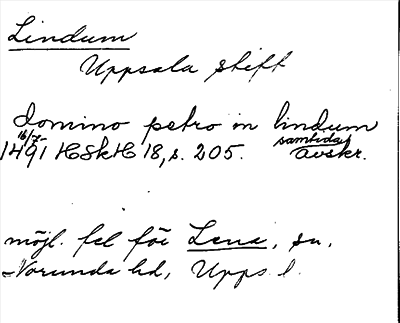 Lindum
Uppsala stift
domino petro in lindum
16/7 1491 HSkH 18, s. 205. samtida avskr.
möjl. fel för Lena, sn,
Norunda hd, Upps. l.